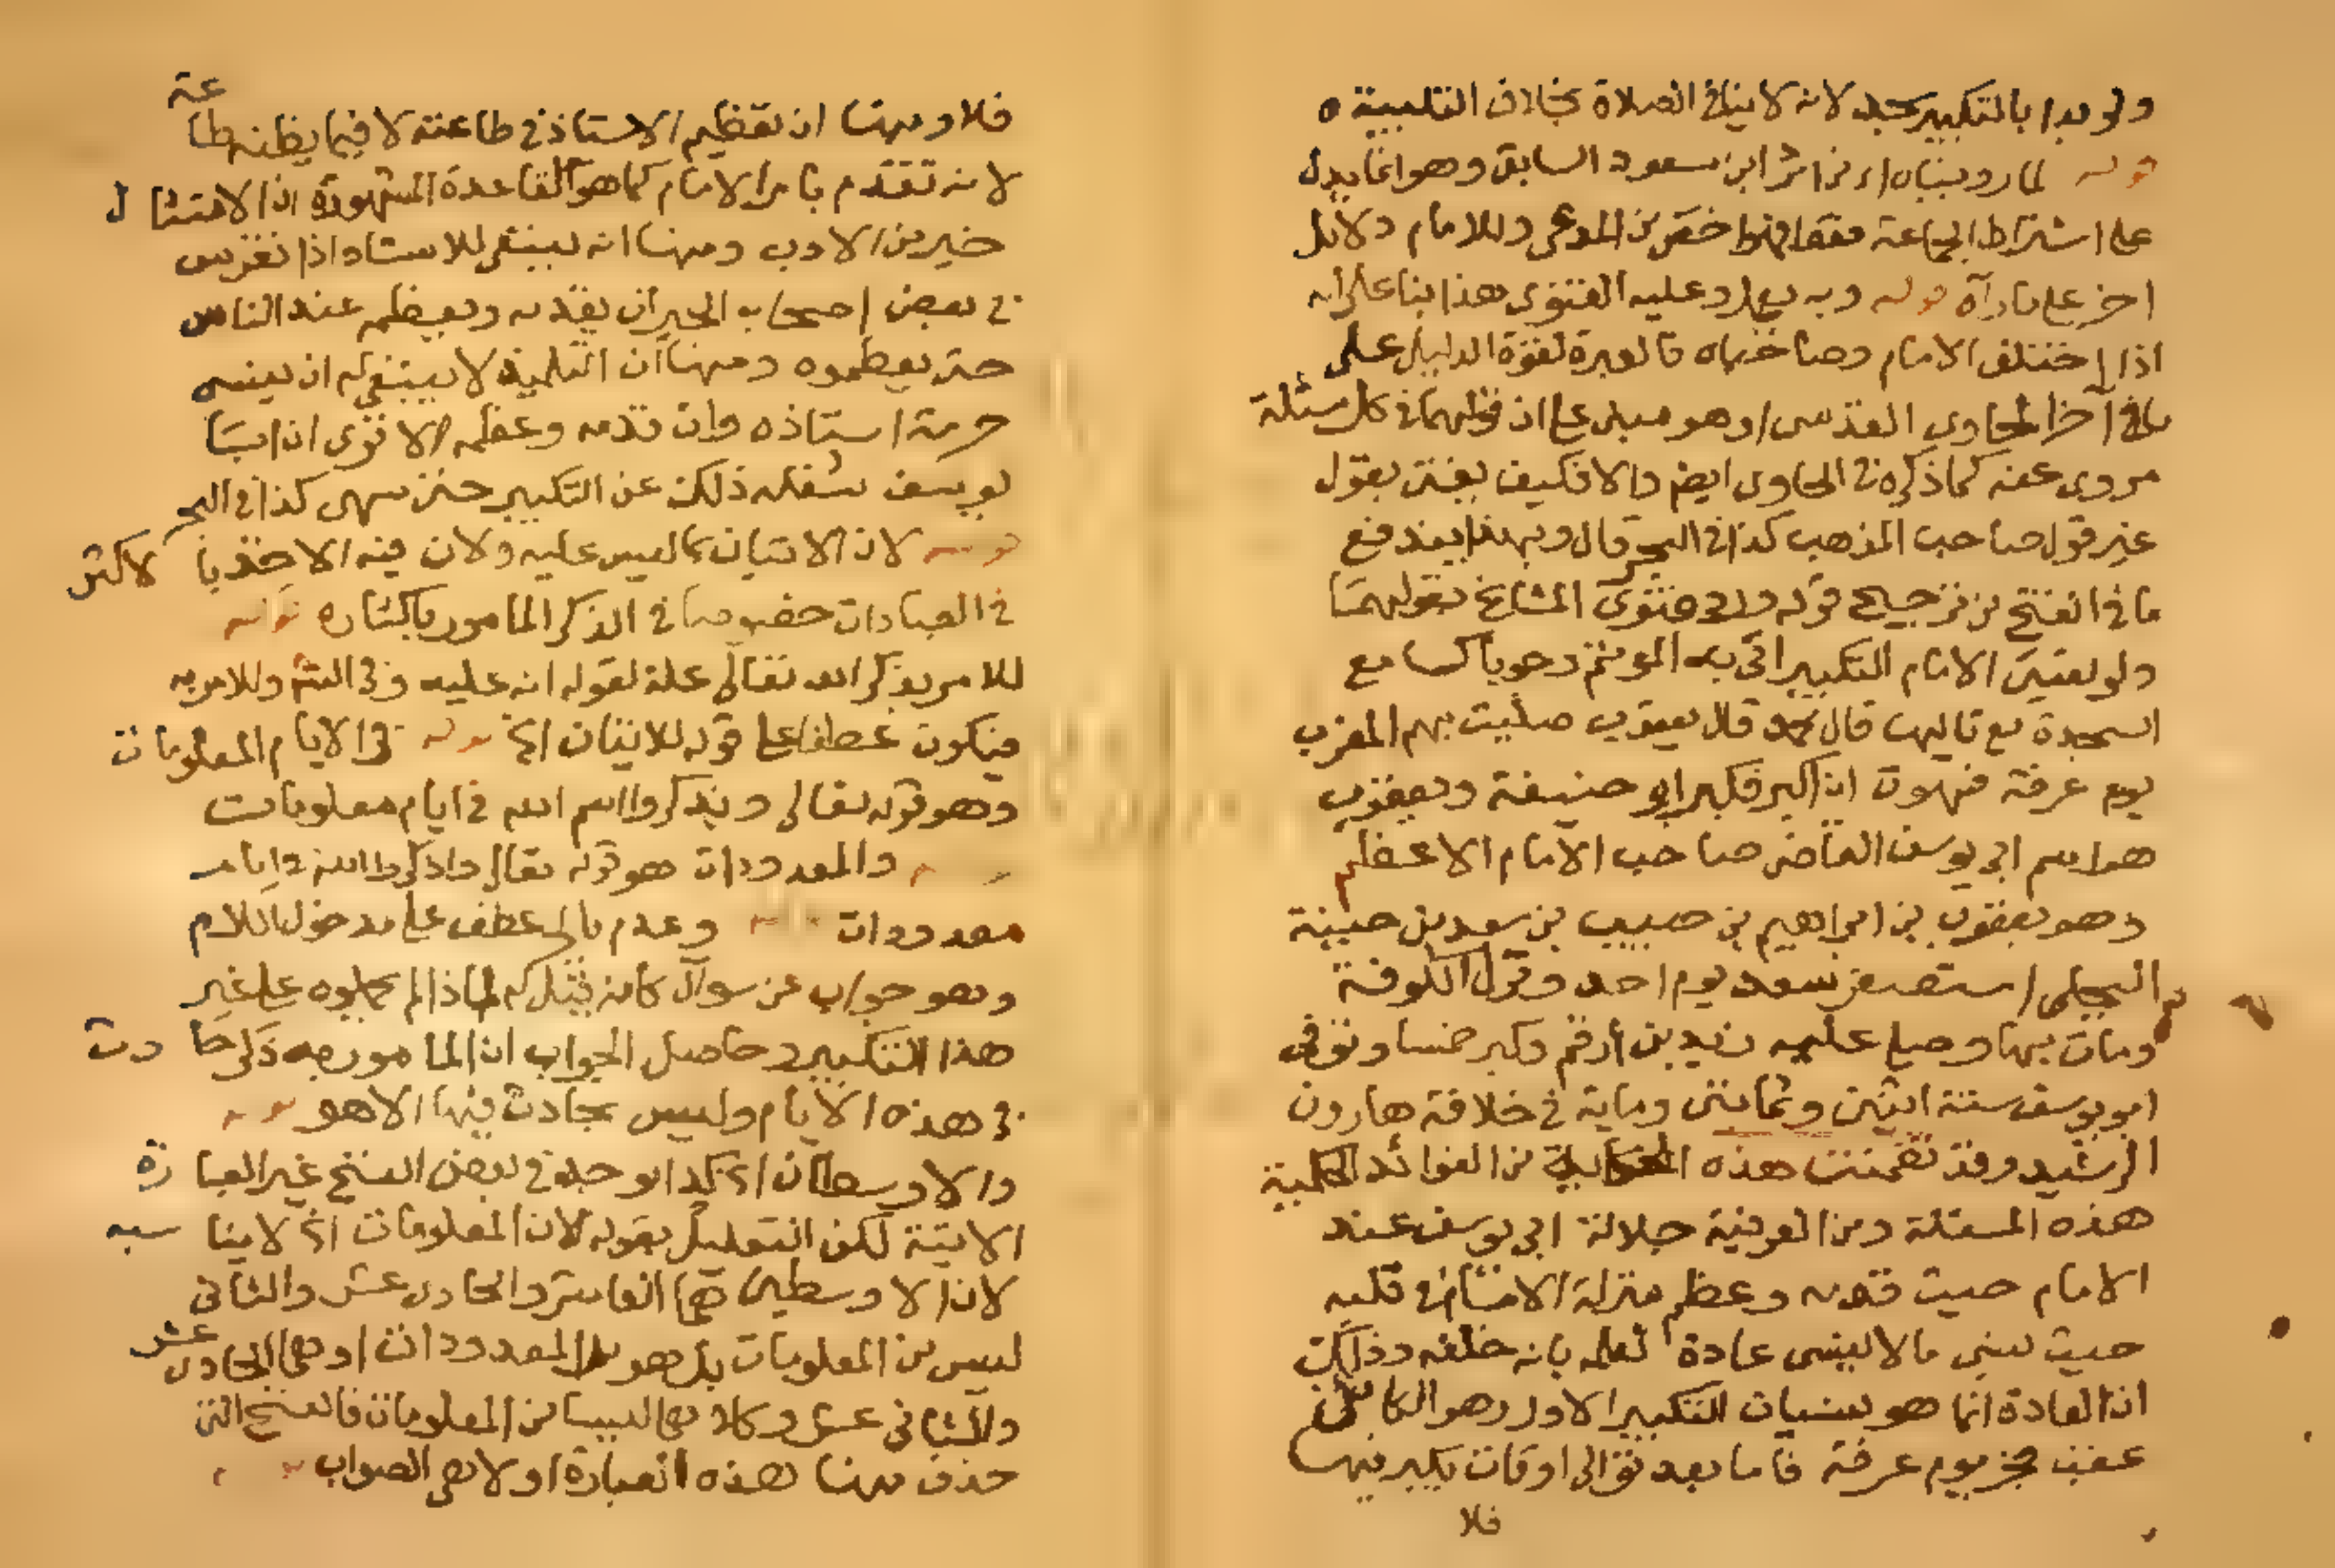 ولو بدا بالتكبير سجد لانه لا ينافي الصلاة بخلاف التلبية ه
قوله لما رويناه اي من اثر ابن مسعود السابق وهو انما يدل
على اشتراط الجماعة فقط فهذا اخص من المدعى وللامام دلايل
اخر على ما رآه قوله وبه يعمل وعليه الفتوى هذا بنا على انه
اذا اختلف الامام وصاحباه فالعبرة لقوة الدليل على
ما في آخر الحاوي القدسي او هو مبني على ان قولهما في كل مسئلة
مروي عنه كما ذكره في الحاوي ايضا والا فكيف يفتى بقول
غير قول صاحب المذهب كذا في البحر قال وبهذا يندفع
ما في الفتح من ترجيح قوله ورد فتوى المشايخ بقولهما
ولو نسي الامام التكبير اتى به المؤتم وجوبا كسامع
السجدة مع تاليها قال محمد قال يعقوب صليت بهم المغرب
يوم عرفة فسهوت ان اكبر فكبر ابو حنيفة ويعقوب
هو اسم ابي يوسف القاضي صاحب الامام الاعظم
وهو يعقوب بن ابراهيم بن حبيب بن سعد بن حبتة
البجلي استصغر سعد يوم احد ونزل الكوفة
ومات بها وصلى عليه زيد بن أرقم وكبر خمسا وتوفي
ابو يوسف سنة اثنتين وثمانين وماية في خلافة هارون
الرشيد وقد تضمنت هذه الحكاية من الفوائد الحكمية
هذه المسئلة ومن العرفية جلالة ابي يوسف عند
الامام حيث قدمه وعظم منزلة الامام في قلبه
حيث نسي ما لا ينسى عادة لعلمه بانه خلفه وذلك
ان العادة انما هو نسيان التكبير الاول وهو الكائن
عقب فجر يوم عرفة فاما بعد توالي اوقات يكبر فيها
فلا
فلا ومنها ان تعظيم الاستاذ في طاعته لا فيما يظنه طاعة
لانه تقدم بامر الامام كما هو القاعدة المشهورة ان الامتثال
خير من الادب ومنها انه ينبغي للاستاذ اذا تفرس
في بعض اصحابه الخير ان يقدمه ويعظمه عند الناس
حتى يعظموه ومنها ان التلميذ لا ينبغي له ان ينسى
حرمة استاذه وان قدمه وعظمه الا ترى ان ابا
يوسف شغله ذلك عن التكبير حتى سهى كذا في البحر
قوله لان الاتيان بما ليس عليه ولان فيه الاخذ بالاكثر
في العبادات خصوصا في الذكر المامور باكثاره قوله
للامر بذكر الله تعالى علة لقوله انه عليه وفي النهر وللامر به
فيكون عطفا على قوله للاتيان اي قوله في الايام المعلومات
وهو قوله تعالى ويذكروا اسم الله في ايام معلومات
والمعدودات هو قوله تعالى واذكروا الله في ايام
معدودات وعدم بالجر عطف على مدخول اللام
وهو جواب عن سؤال كانه قيل له لماذا لم يحملوه على غير
هذا التكبير وحاصل الجواب ان المامور به ذكر حادث
في هذه الايام وليس بحادث فيها الا هو قوله
والاوسطان اي كذا يوجد في بعض النسخ غير العبارة
الاتية لكن التعليل بقوله لان المعلومات اي لا يناسبه
لان الاوسطين هما العاشر والحادي عشر والثاني
ليس من المعلومات بل هو من المعدودات او هي الحادي عشر
والثاني عشر وكلاهما ليسا من المعلومات فالنسخ التي
حذف منها هذه العبارة اولا هي الصواب